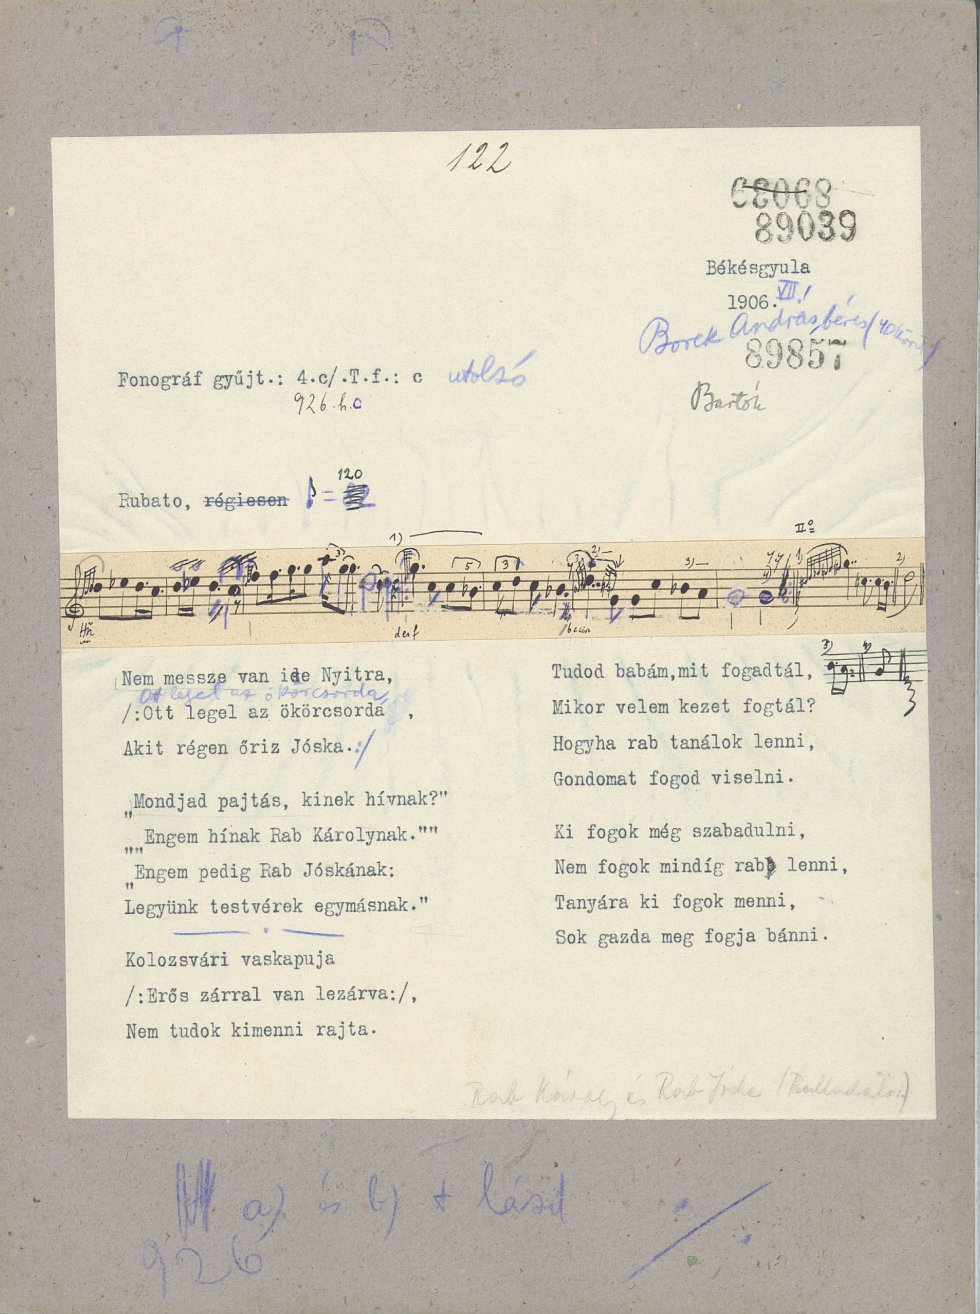 122
89039
Békésgyula
1906. VII!
Borek András, béres (40 körül)
89857
Fonográf gyűjt.: 4.c/.T.f.: c utolsó
926.h.c
Bartók
120
Rubato, régiesen ♪ =
1) 3 5 3 2) 3) IIº 1) 2)
des f
Nem messze van ide Nyitra,
Ott legel az ökörcsorda,
/:Ott legel az ökörcsorda ,
Akit régen őriz Jóska.:/
„Mondjad pajtás, kinek hívnak?"
„„Engem hínak Rab Károlynak.""
„Engem pedig Rab Jóskának:
Legyünk testvérek egymásnak."
Kolozsvári vaskapuja
/:Erős zárral van lezárva:/,
Nem tudok kimenni rajta.
Tudod babám,mit fogadtál,
Mikor velem kezet fogtál?
Hogyha rab tanálok lenni,
Gondomat fogod viselni.
Ki fogok még szabadulni,
Nem fogok mindíg rab lenni,
Tanyára ki fogok menni,
Sok gazda meg fogja bánni.
Rab Károly és Rab Jóska
a) és b) + lásd
926